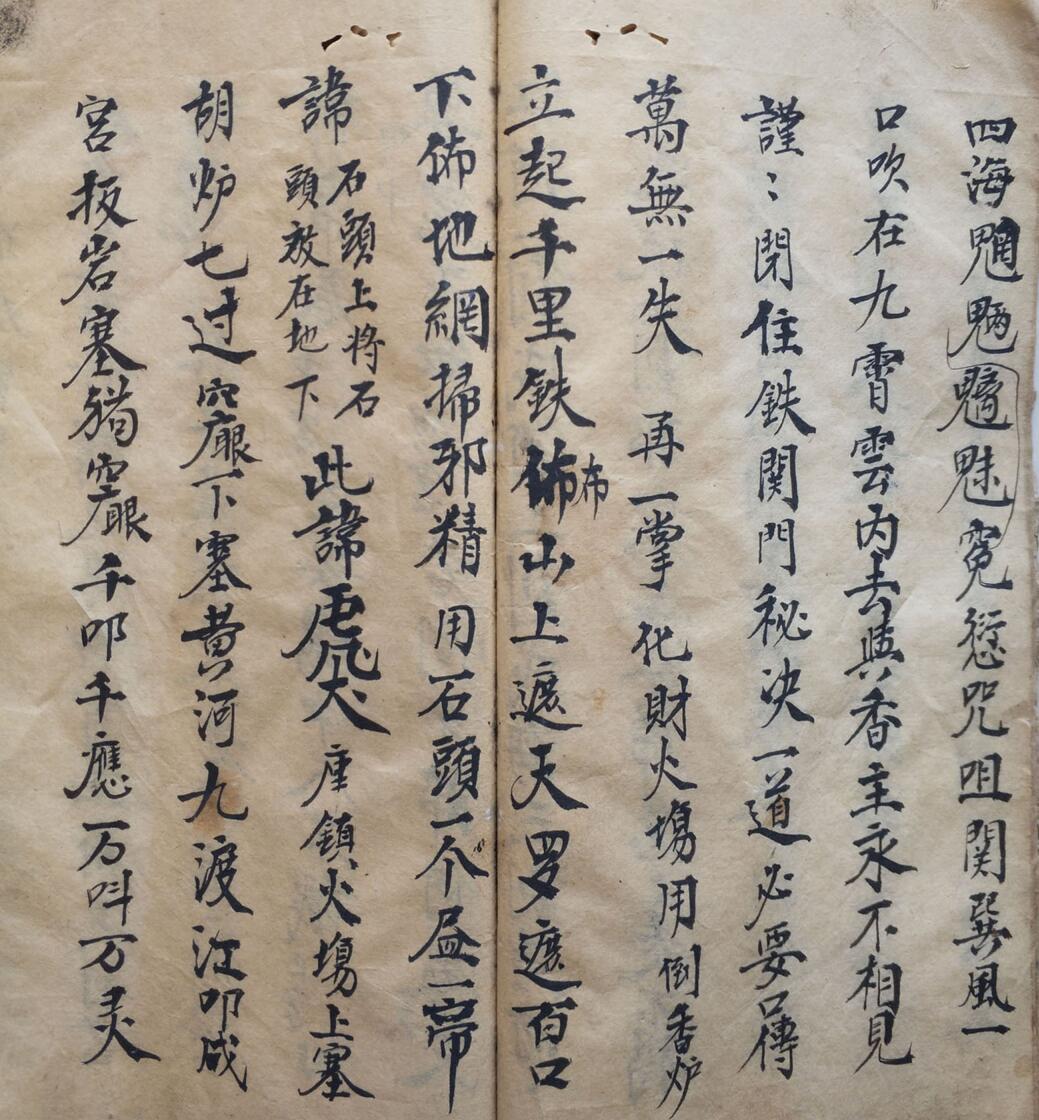 四海魍魎魑魅寃愆咒咀関巽風一
口吹在九霄雲内去與香主永不相見
謹〻閉住鉄関門秘决一道必要口傳
萬無一失 再一掌化財火塲用倒香炉
立起千里鉄佈布山上遮天罗遮百口
下佈地網掃邪精用石頭一个
諱石頭上將石頭放在地下此諱鎮火塲上塞
胡炉七过下塞黄河九渡江叩成
宮板岩塞猪千叩千應一万呌万灵